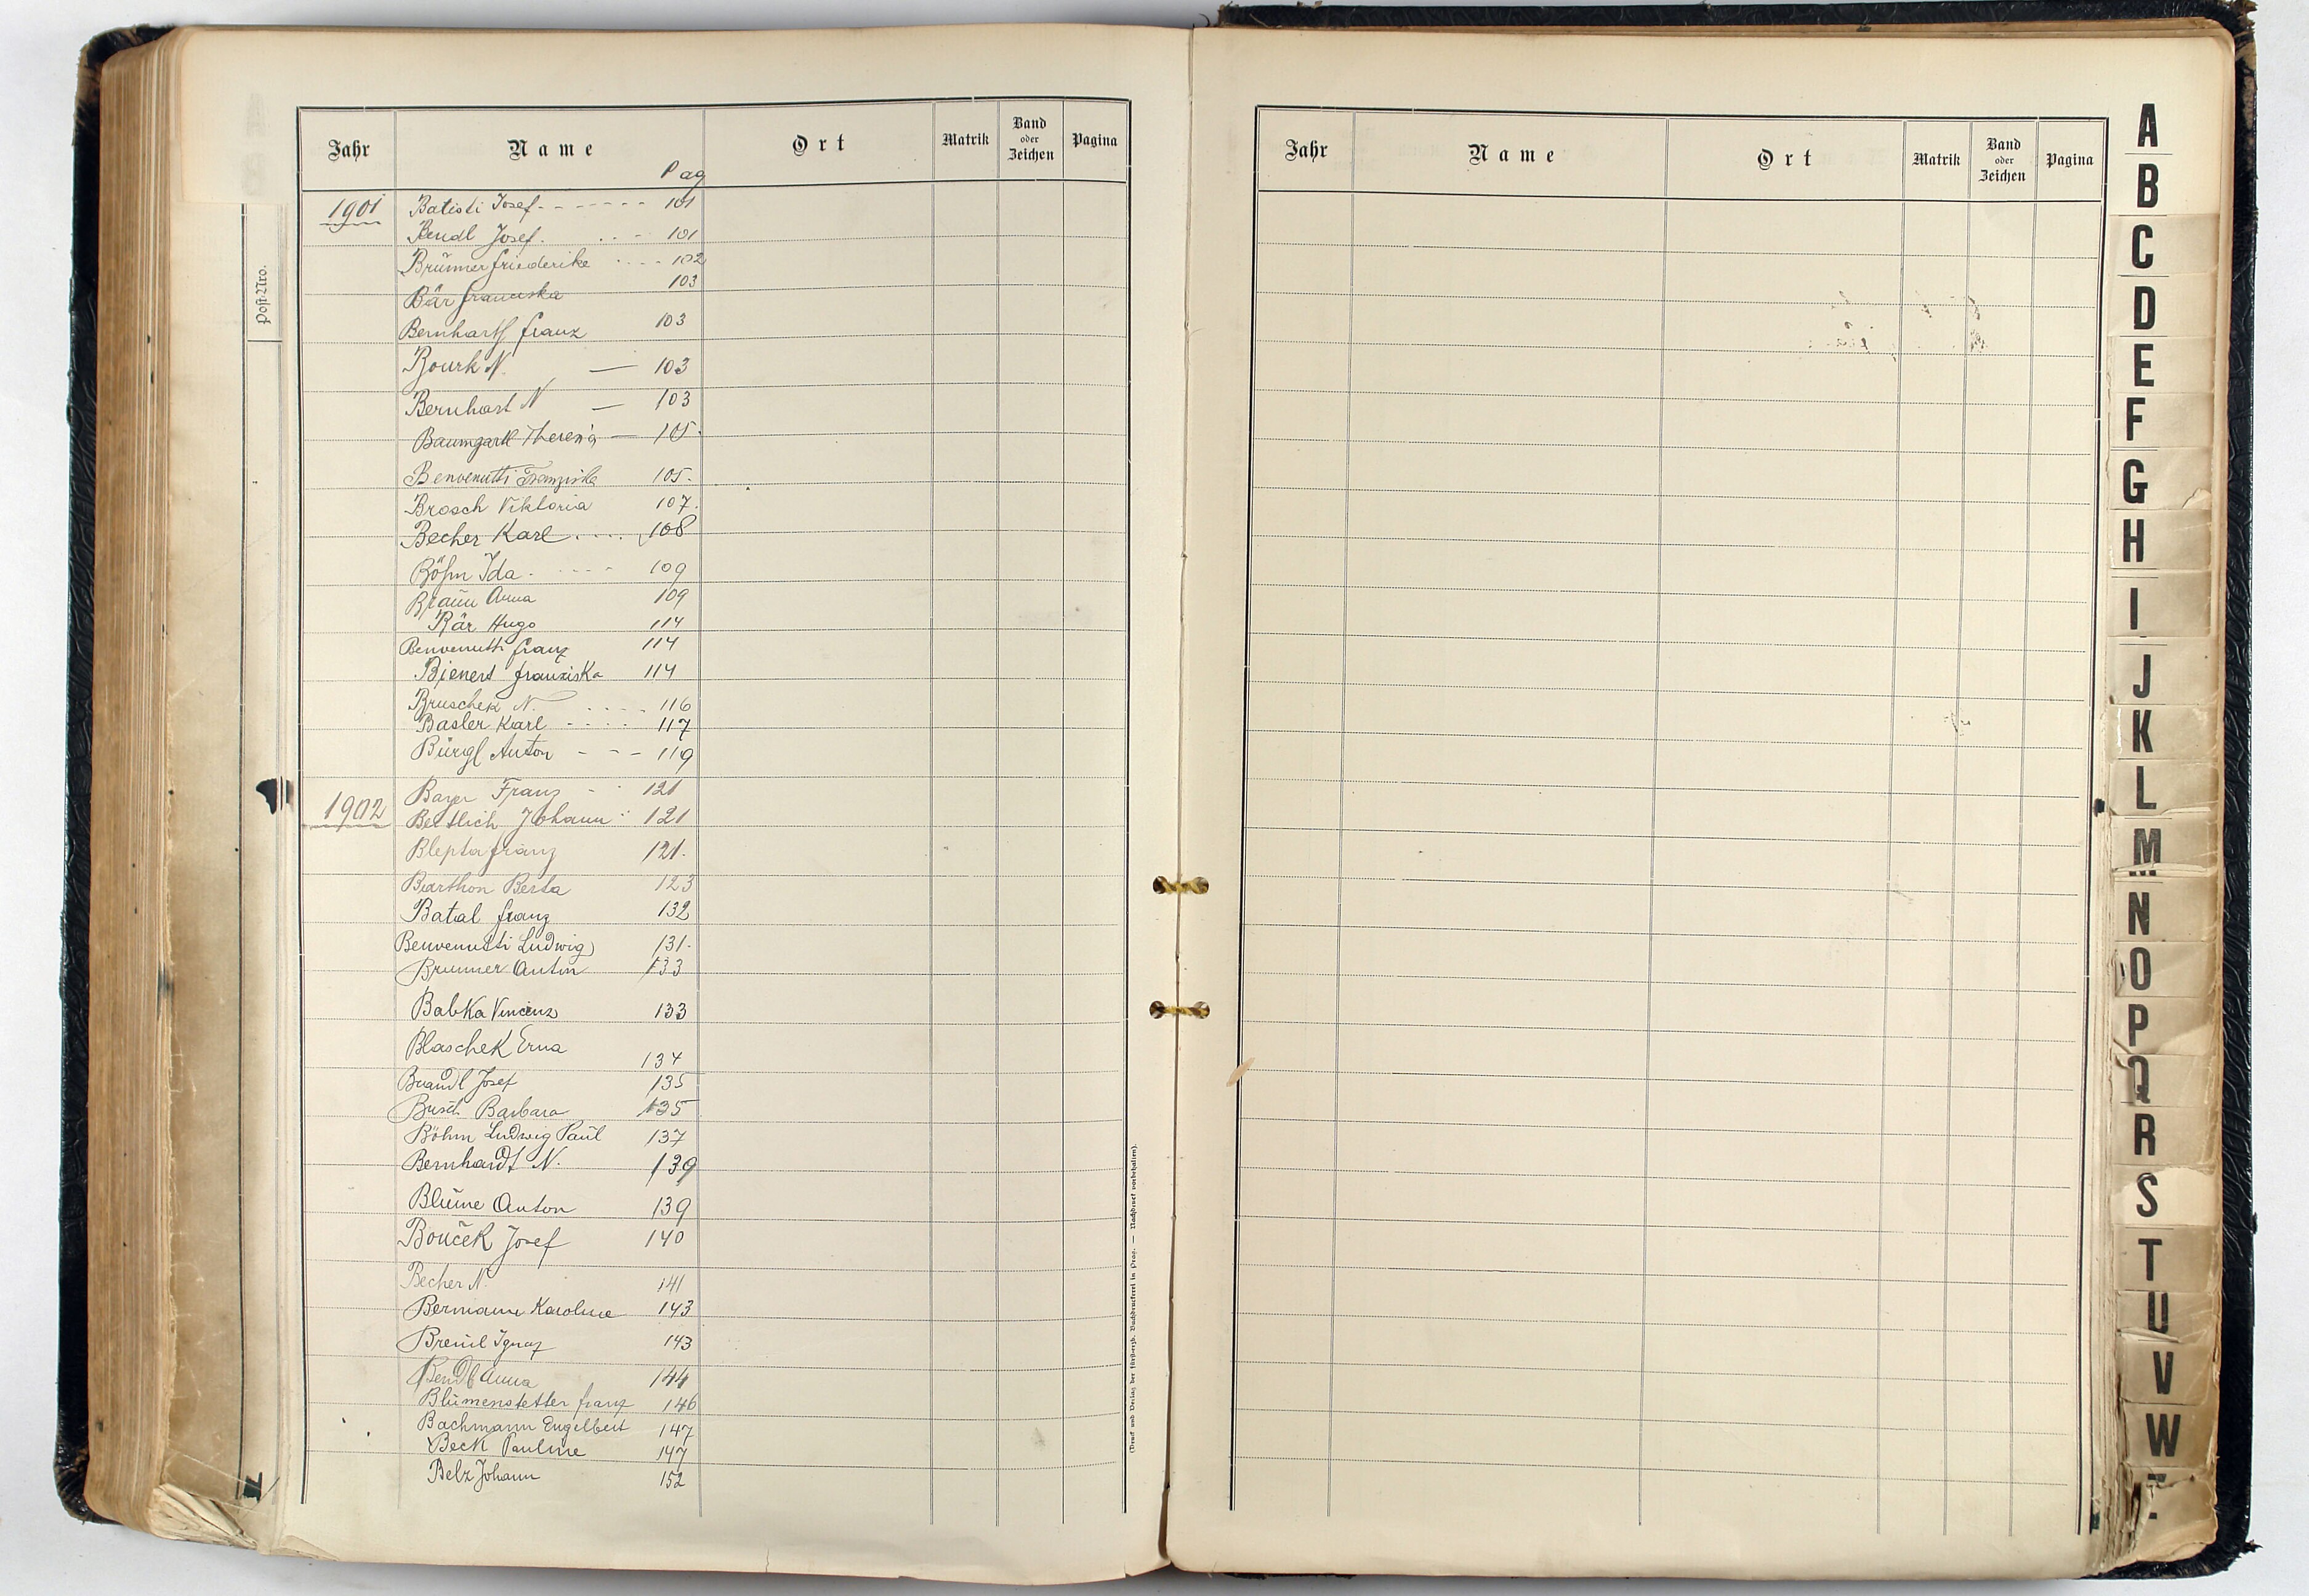 Post-Nro.
Jahr Name Ort Matrik Band oder Zeichen Pagina
Pag
1901 Batisti Josef 101
Bendl Josef 101
Brünner Friederike 102
Bär Franziska 103
Bernhart Franz 103
Bourk N 103
Bernhart N 103
Baumgartl Theresia 105
Benvenutti Franziska 105
Brosch Viktoria 107
Becher Karl 108
Böhm Ida 109
Braün Anna 109
Bär Hugo 114
Benvenutti Franz 114
Bienert Franziska 114
Bruschek N. 116
Basler Karl 117
Bürgl Anton 119
1902 Bayer Franz 121
Bettlich Johann 121
Blepta Franz 121
Barthon Berta 123
Batal Franz 132
Benvenutti Ludwig 131
Brunner Anton 133
Babka Vincenz 133
Blaschek Erna 134
Brandl Josef 135
Busch Barbara 135
Böhm Ludwig Paül 137
Bernhardt N. 139
Blüme Anton 139
Bouček Josef 140
Becher N. 141
Bermann Karoline 143
Breinl Ignaz 143
Bendl Anna 144
Blümenstetter Franz 146
Bachmann Engelbert 147
Beck Pauline 147
Belz Johann 152
(Druck und Verlag der fürsterzb. Buchdruckerei in Prag. — Nachdruck vorbehalten).
Jahr Name Ort Matrik Band oder Zeichen Pagina
A
B
C
D
E
F
G
H
I
J
K
L
M
N
O
P
Q
R
S
T
U
V
W